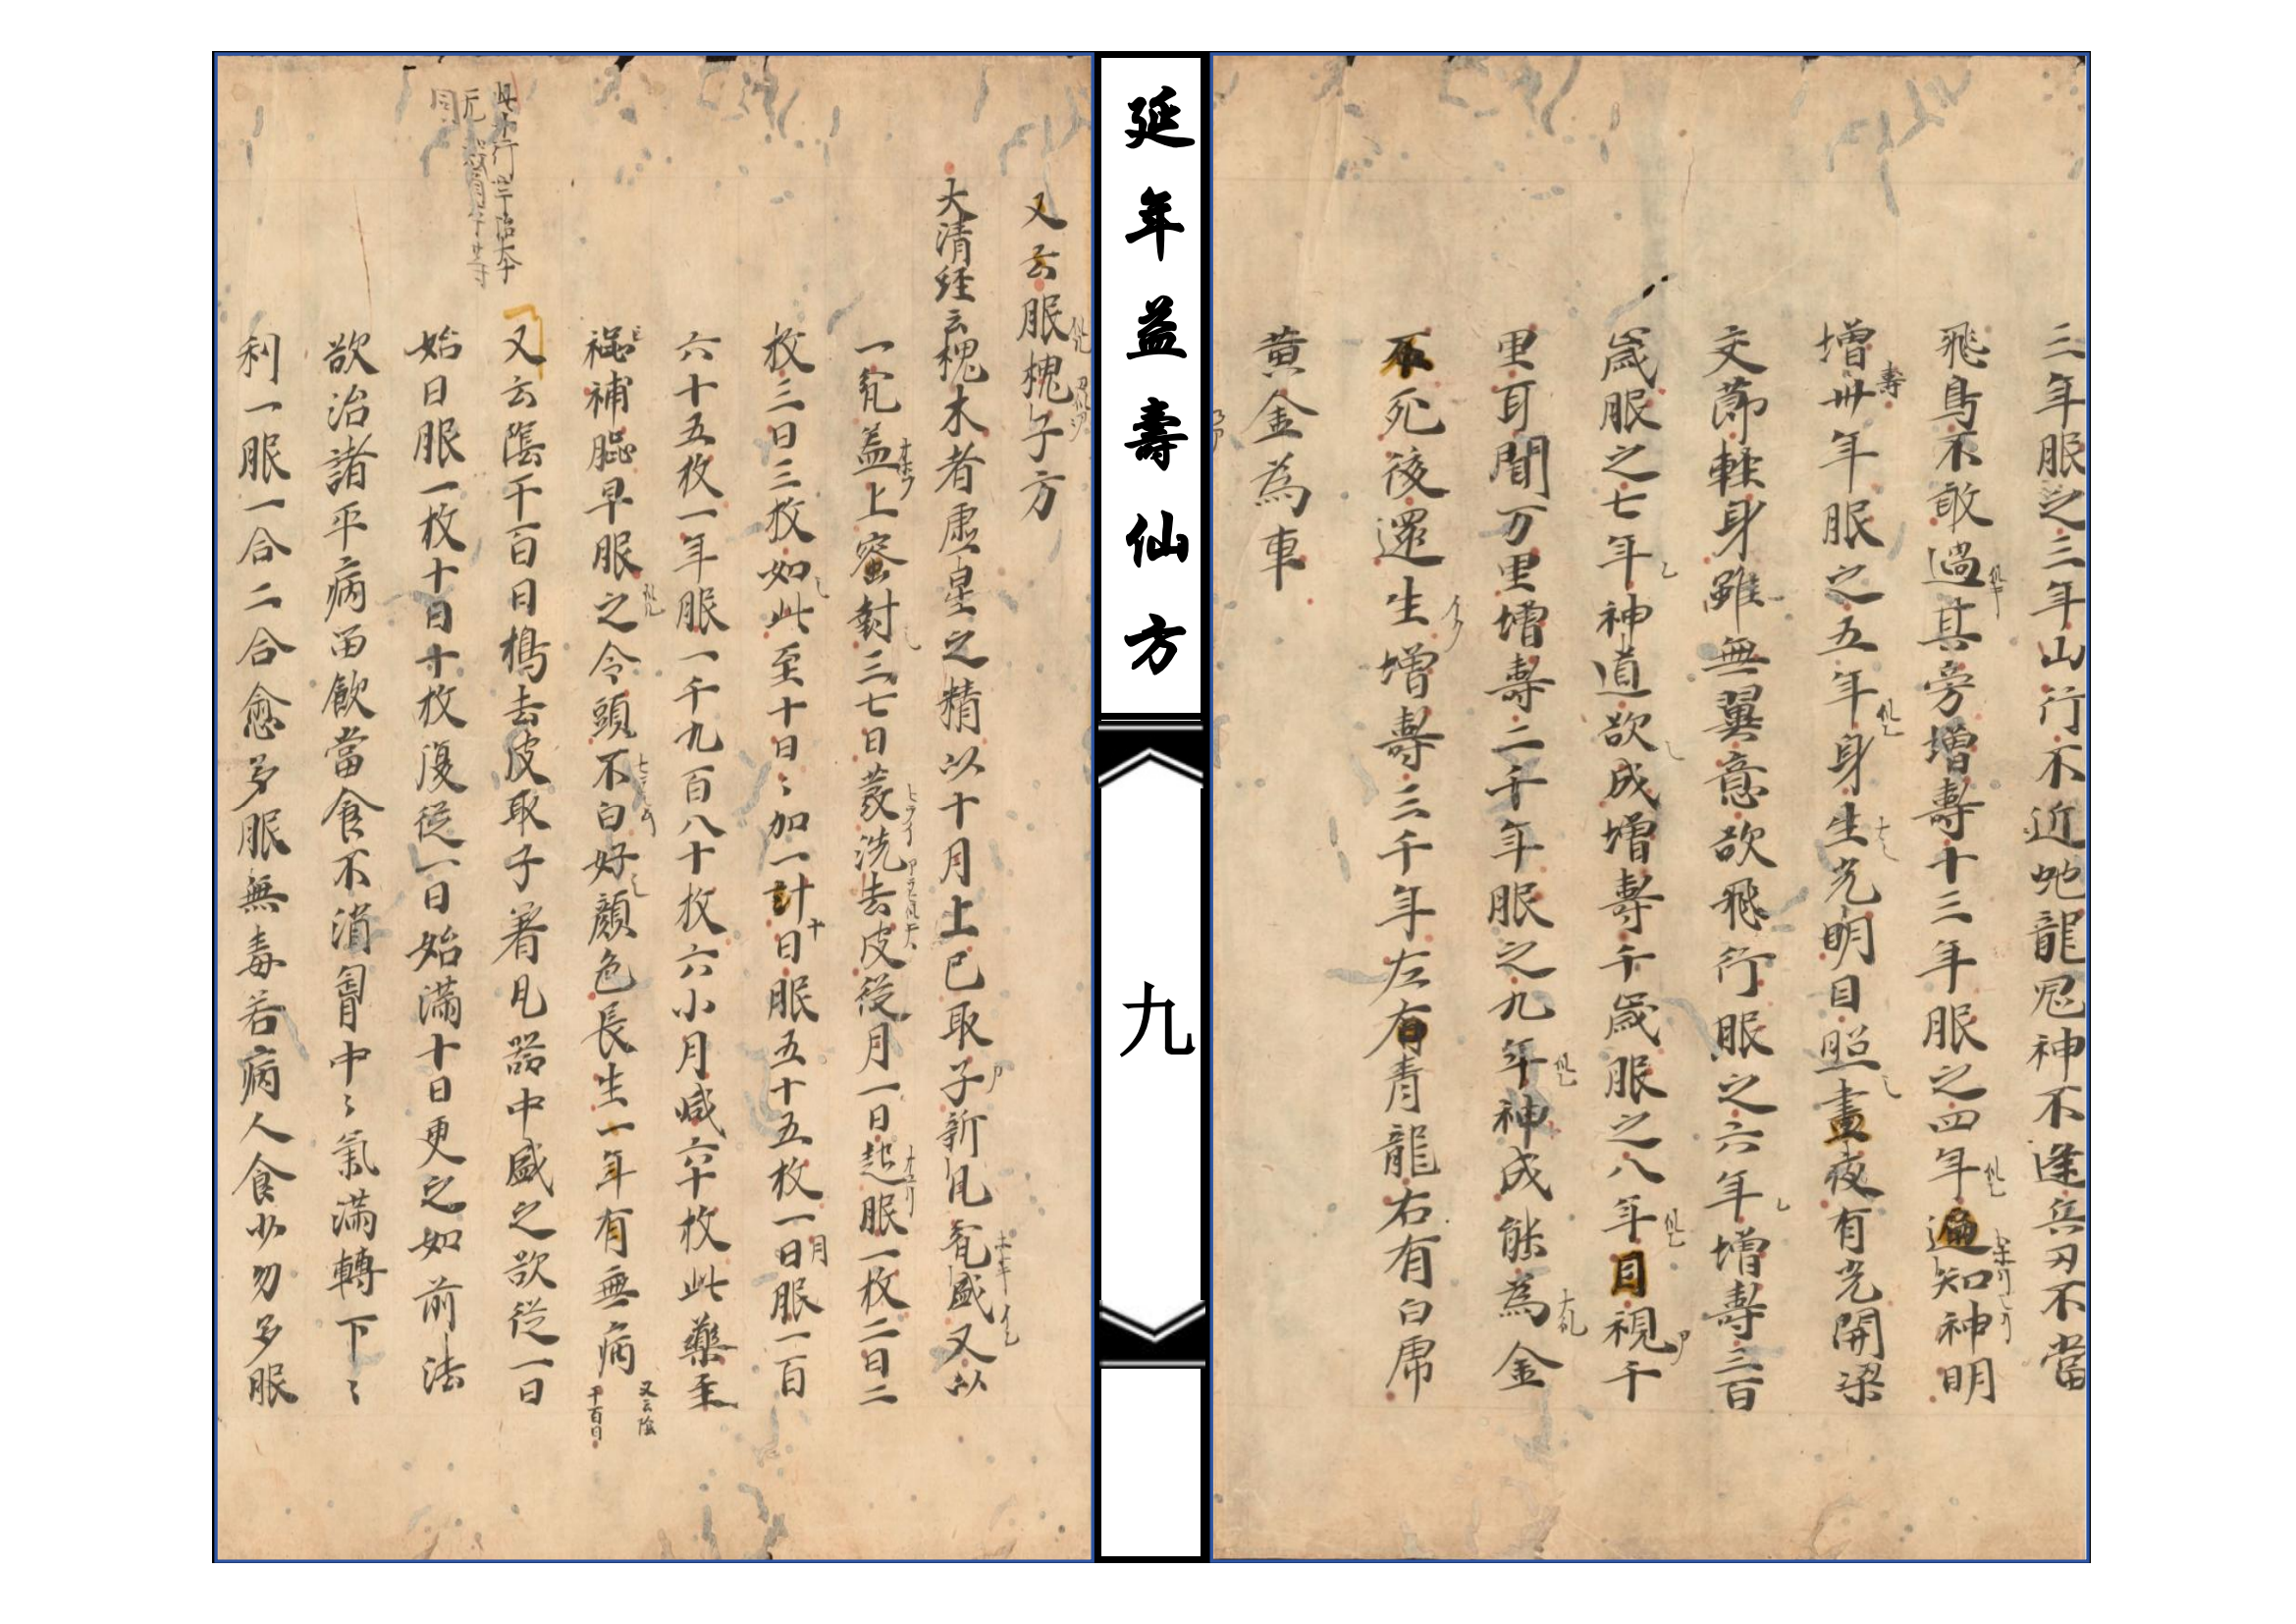 三年服之三年山行不近虵龍鬼神不逢兵刃不當
飛鳥不敢過其旁增壽十三年服之四年通知神明
增壽卅年服之五年身生光明目照晝夜有光開梁
交節軽身雖無翼意欲飛行服之六年增壽三百
歳服之七年神道欲成增壽千歳服之八年目視千
里耳聞万里增壽二千年服之九年神成能為金
不死後還生增壽三千年左有青龍右有白虎
黄金為車
延年益壽仙方
九
又云服槐子方
大清経云槐木者虚星之精以十月上巳取子新瓦瓮盛又以
一瓮盖上蜜封三七日發洗去皮従月一日起服一枚二日二
枚三日三枚如此至十日〻加一計十日服五十五枚一月日服一百
六十五枚一年服一千九百八十枚六小月減六十枚此藥至
補脳早服之令頭不白好顔色長生一年有無病
又云陰
干百日
又云陰干百日搗去皮取子著瓦器中盛之欲従一日
始日服一枚十日十枚復従一日始満十日更之如前法
欲治諸平病留飲當食不消胃中〻氣満轉下〻
利一服一合二合愈多服無毒若病人食少勿多服